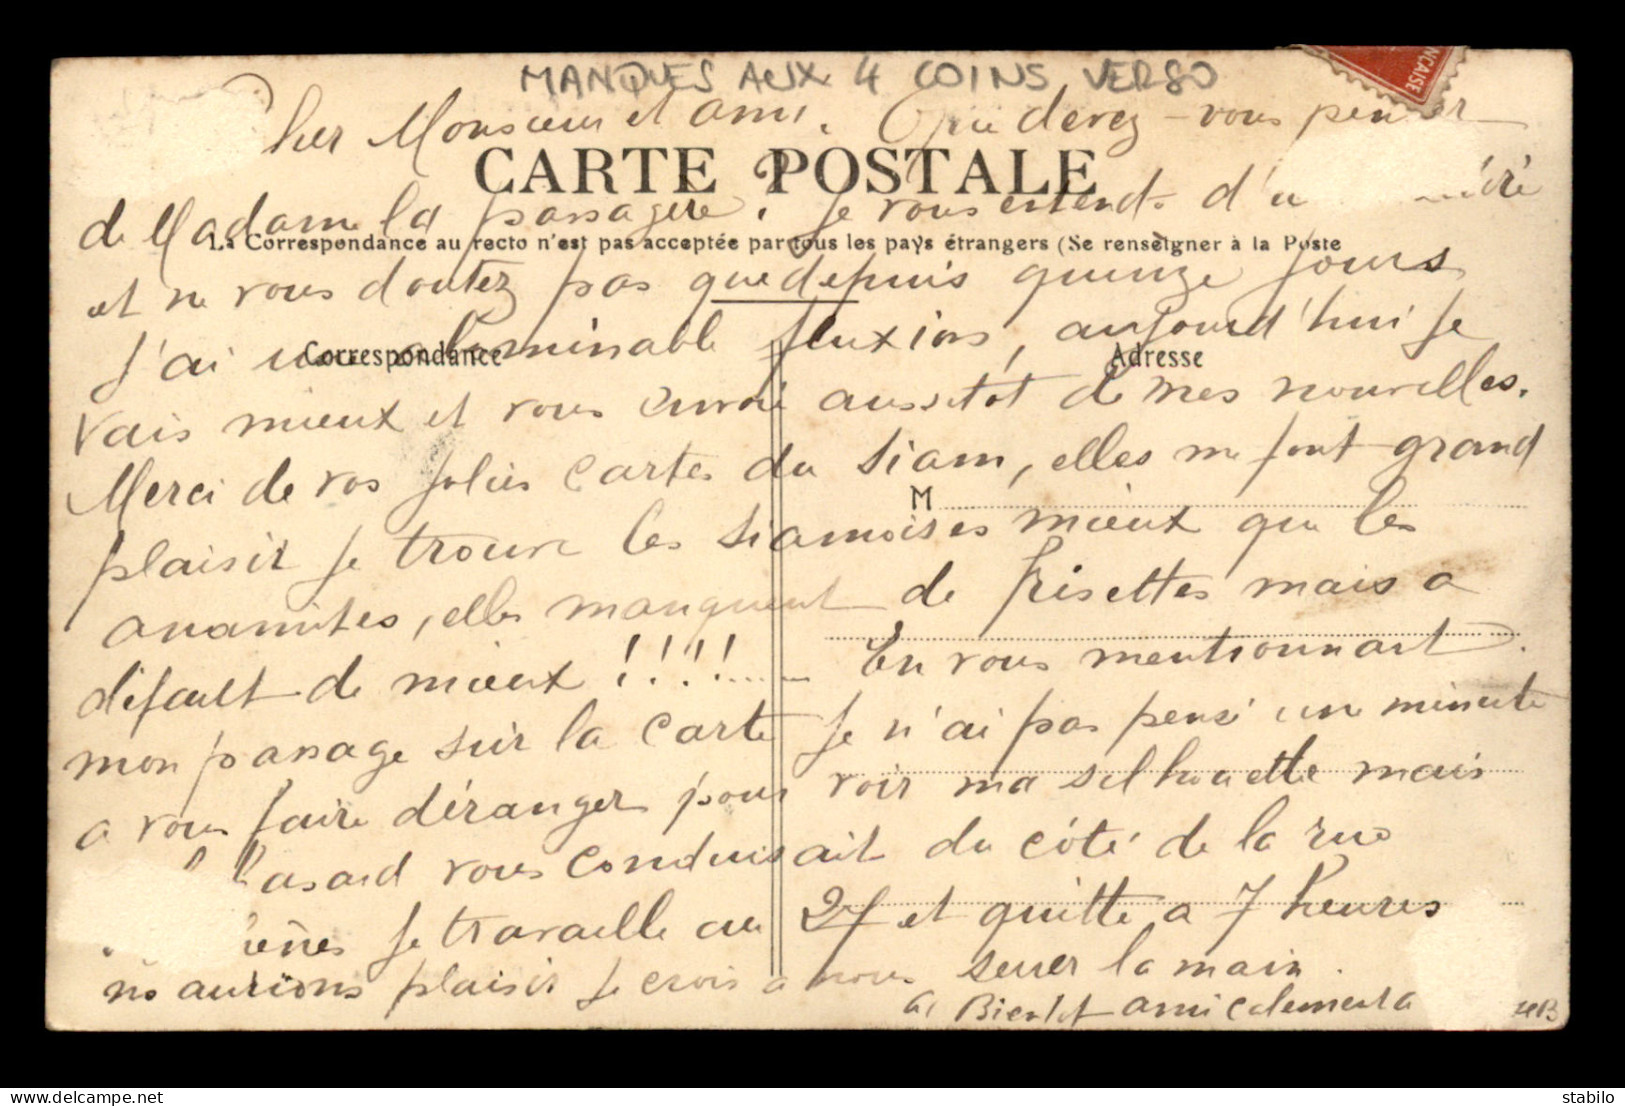 MANQUES AUX 4 COINS VERSO
FRANÇAISE
Cher Monsieur et ami. Que devez-vous penser
CARTE POSTALE
de Madame la passagère? Je vous entends d'
La Correspondance au recto n'est pas acceptée par tous les pays étrangers (Se renseigner à la Poste
et ne vous doutez pas que depuis quinze jours
j'ai une abominable fluxion, aujourd'hui je
Correspondance
Adresse
vais mieux et vous envoie aussitot de mes nouvelles.
Merci de vos jolies cartes du Siam, elles me font grand
M
plaisir je trouve les Siamoises mieux que les
anamites, elles manquent de frisettes mais a
défault de mieux !!!!..... En vous mentionnant
mon passage sur la carte je n'ai pas pensé une minute
a vous faire déranger pour voir ma silhouette mais
hasard vous conduisait du côté de la rue
je travaille au 27 et quitte a 7 heures
ns aurions plaisir je crois a nous serrer la main.
a Bientot amicalement a